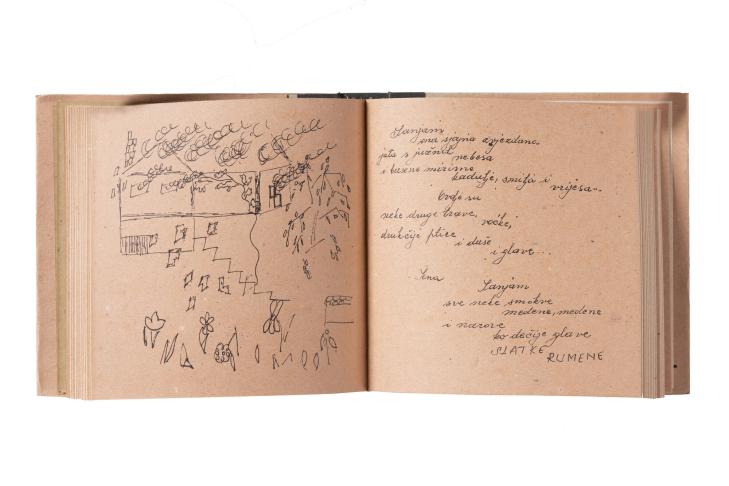 Sanjam
ona sjajna zvjezdana
jata s južnih
nebesa
i busene mirisne
kadulje, smilja i
vrijesa..
Ovdje su
neke druge trave,
voćke,
drukčije ptice
i duše
i glave...
Sanjam
sve neke smokve
medene, medene
i narove
ko dečije glave
SLATKE
RUMENE